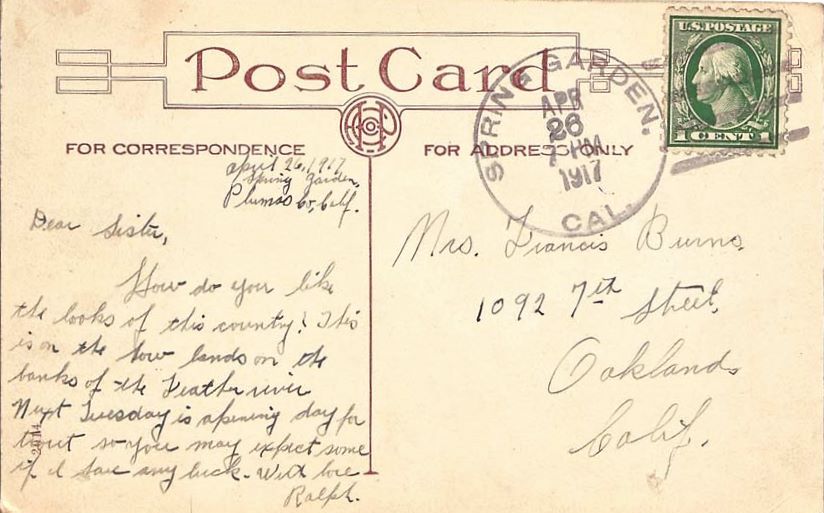 Post Card
FOR CORRESPONDENCE
FOR ADDRESS ONLY
U.S. POSTAGE
1 CENT 1
SPRING GARDEN.
APR
26
7 PM
1917
CAL.
April 26, 1917
Spring Garden,
Plumas Co, Calif.
Dear Sister,
How do you like
the looks of this country? This
is on the low lands on the
banks of the Feather river
Next Tuesday is opening day for
trout so you may expect some
if I have any luck. With love
Ralph.
Mrs. Francis Burns,
1092 7th Street,
Oakland,
Calif.